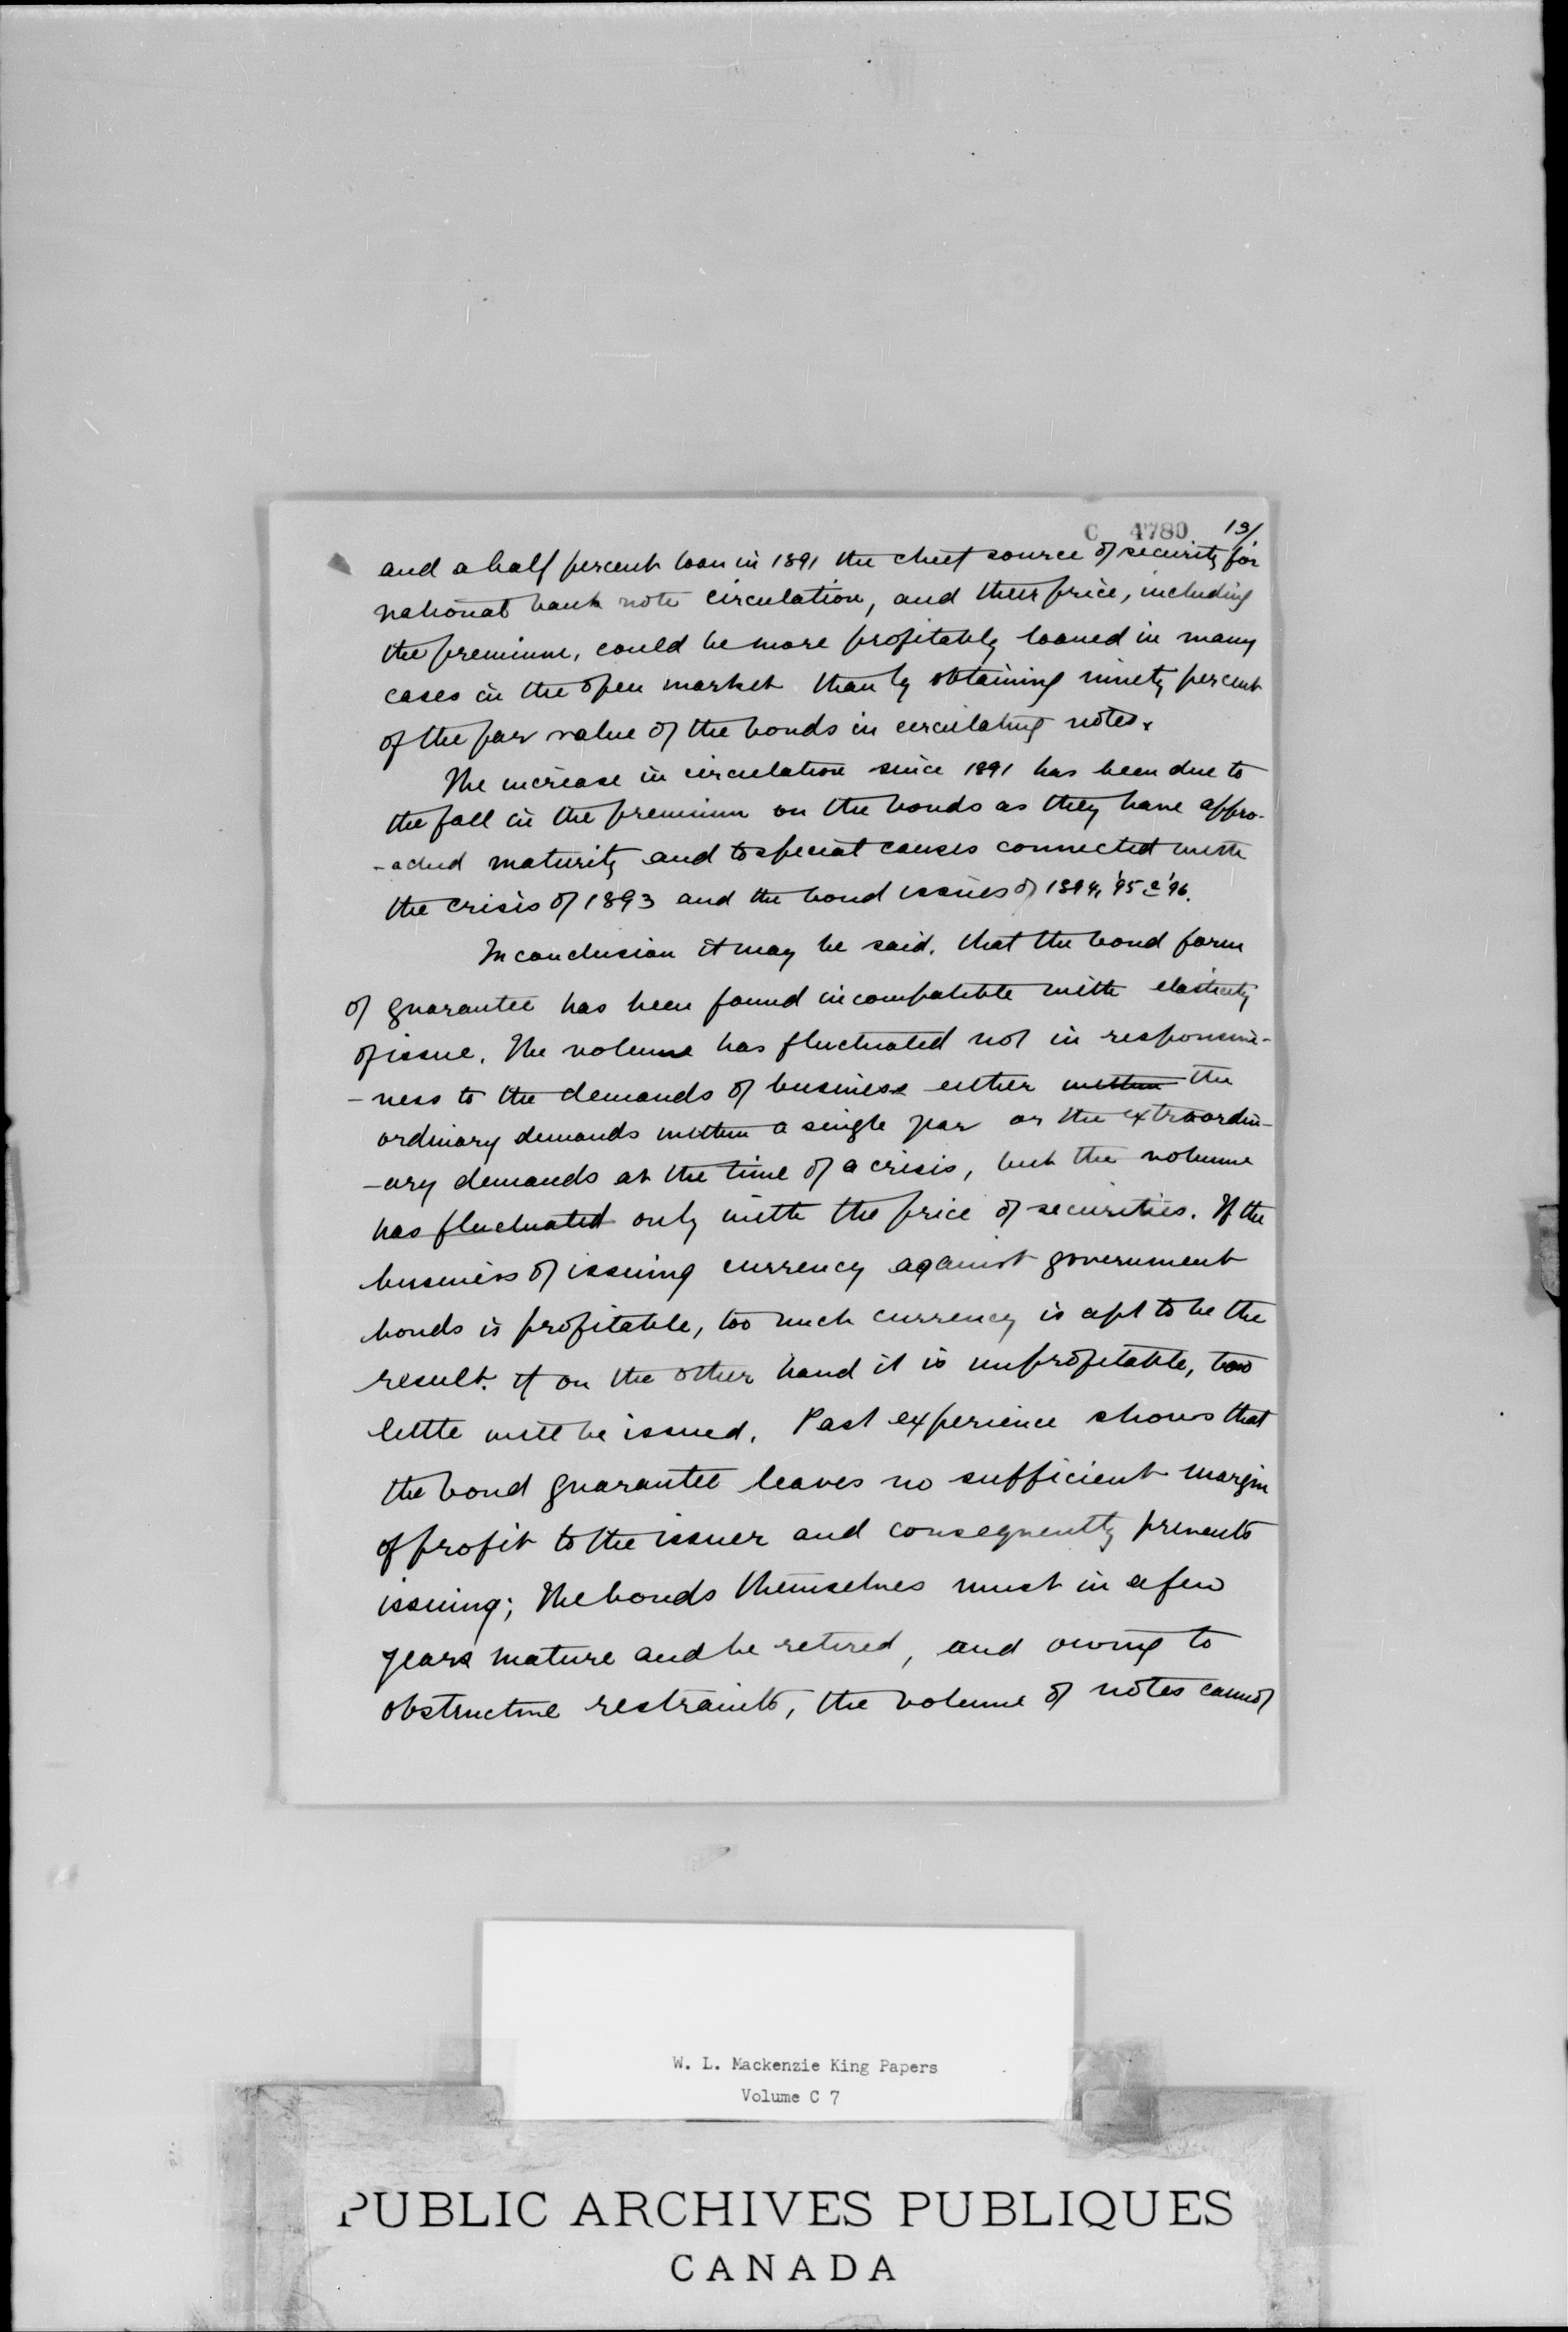 C 4780 13/
and a half percent loan in 1891 the chief source of security for
national bank note circulation, and their price, including
the premium, could be more profitably loaned in many
cases in the open market than by obtaining ninety percent
of the par value of the bonds in circulating notes.
The increase in circulation since 1891 has been due to
the fall in the premium on the bonds as they have appro-
-ached maturity and to special causes connected with
the crisis of 1893 and the bond issues of 1894, '95 & '96.
In conclusion it may be said, that the bond form
of guarantee has been found incompatible with elasticity
of issue. The volume has fluctuated not in responsive-
-ness to the demands of business either within the
ordinary demands within a single year or the extraordin-
-ary demands at the time of a crisis, but the volume
has fluctuated only with the price of securities. If the
business of issuing currency against government
bonds is profitable, too much currency is apt to be the
result. If on the other hand it is unprofitable, too
little will be issued. Past experience shows that
the bond guarantee leaves no sufficient margin
of profit to the issuer and consequently prevents
issuing; The bonds themselves must in a few
years mature and be retired, and owing to
obstructive restraints, the volume of notes cannot
W. L. Mackenzie King Papers
Volume C 7
PUBLIC ARCHIVES PUBLIQUES
CANADA